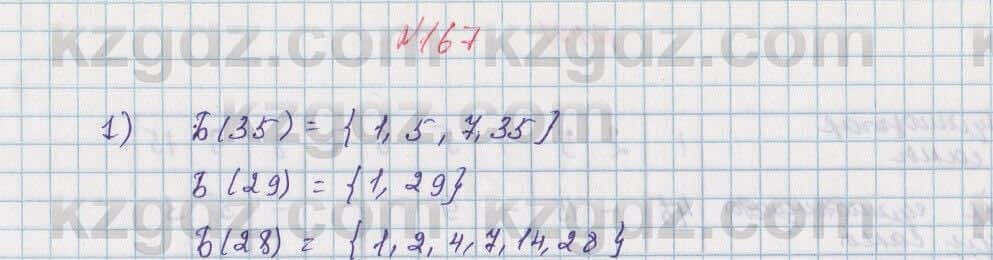 kzgdz.com kzgdz.com
№167
kzgdz.com
1) Б(35) = {1, 5, 7, 35}
Б (29) = {1, 29}
kzgdz.com kzgdz.com
Б(28) = {1, 2, 4, 7, 14, 28}